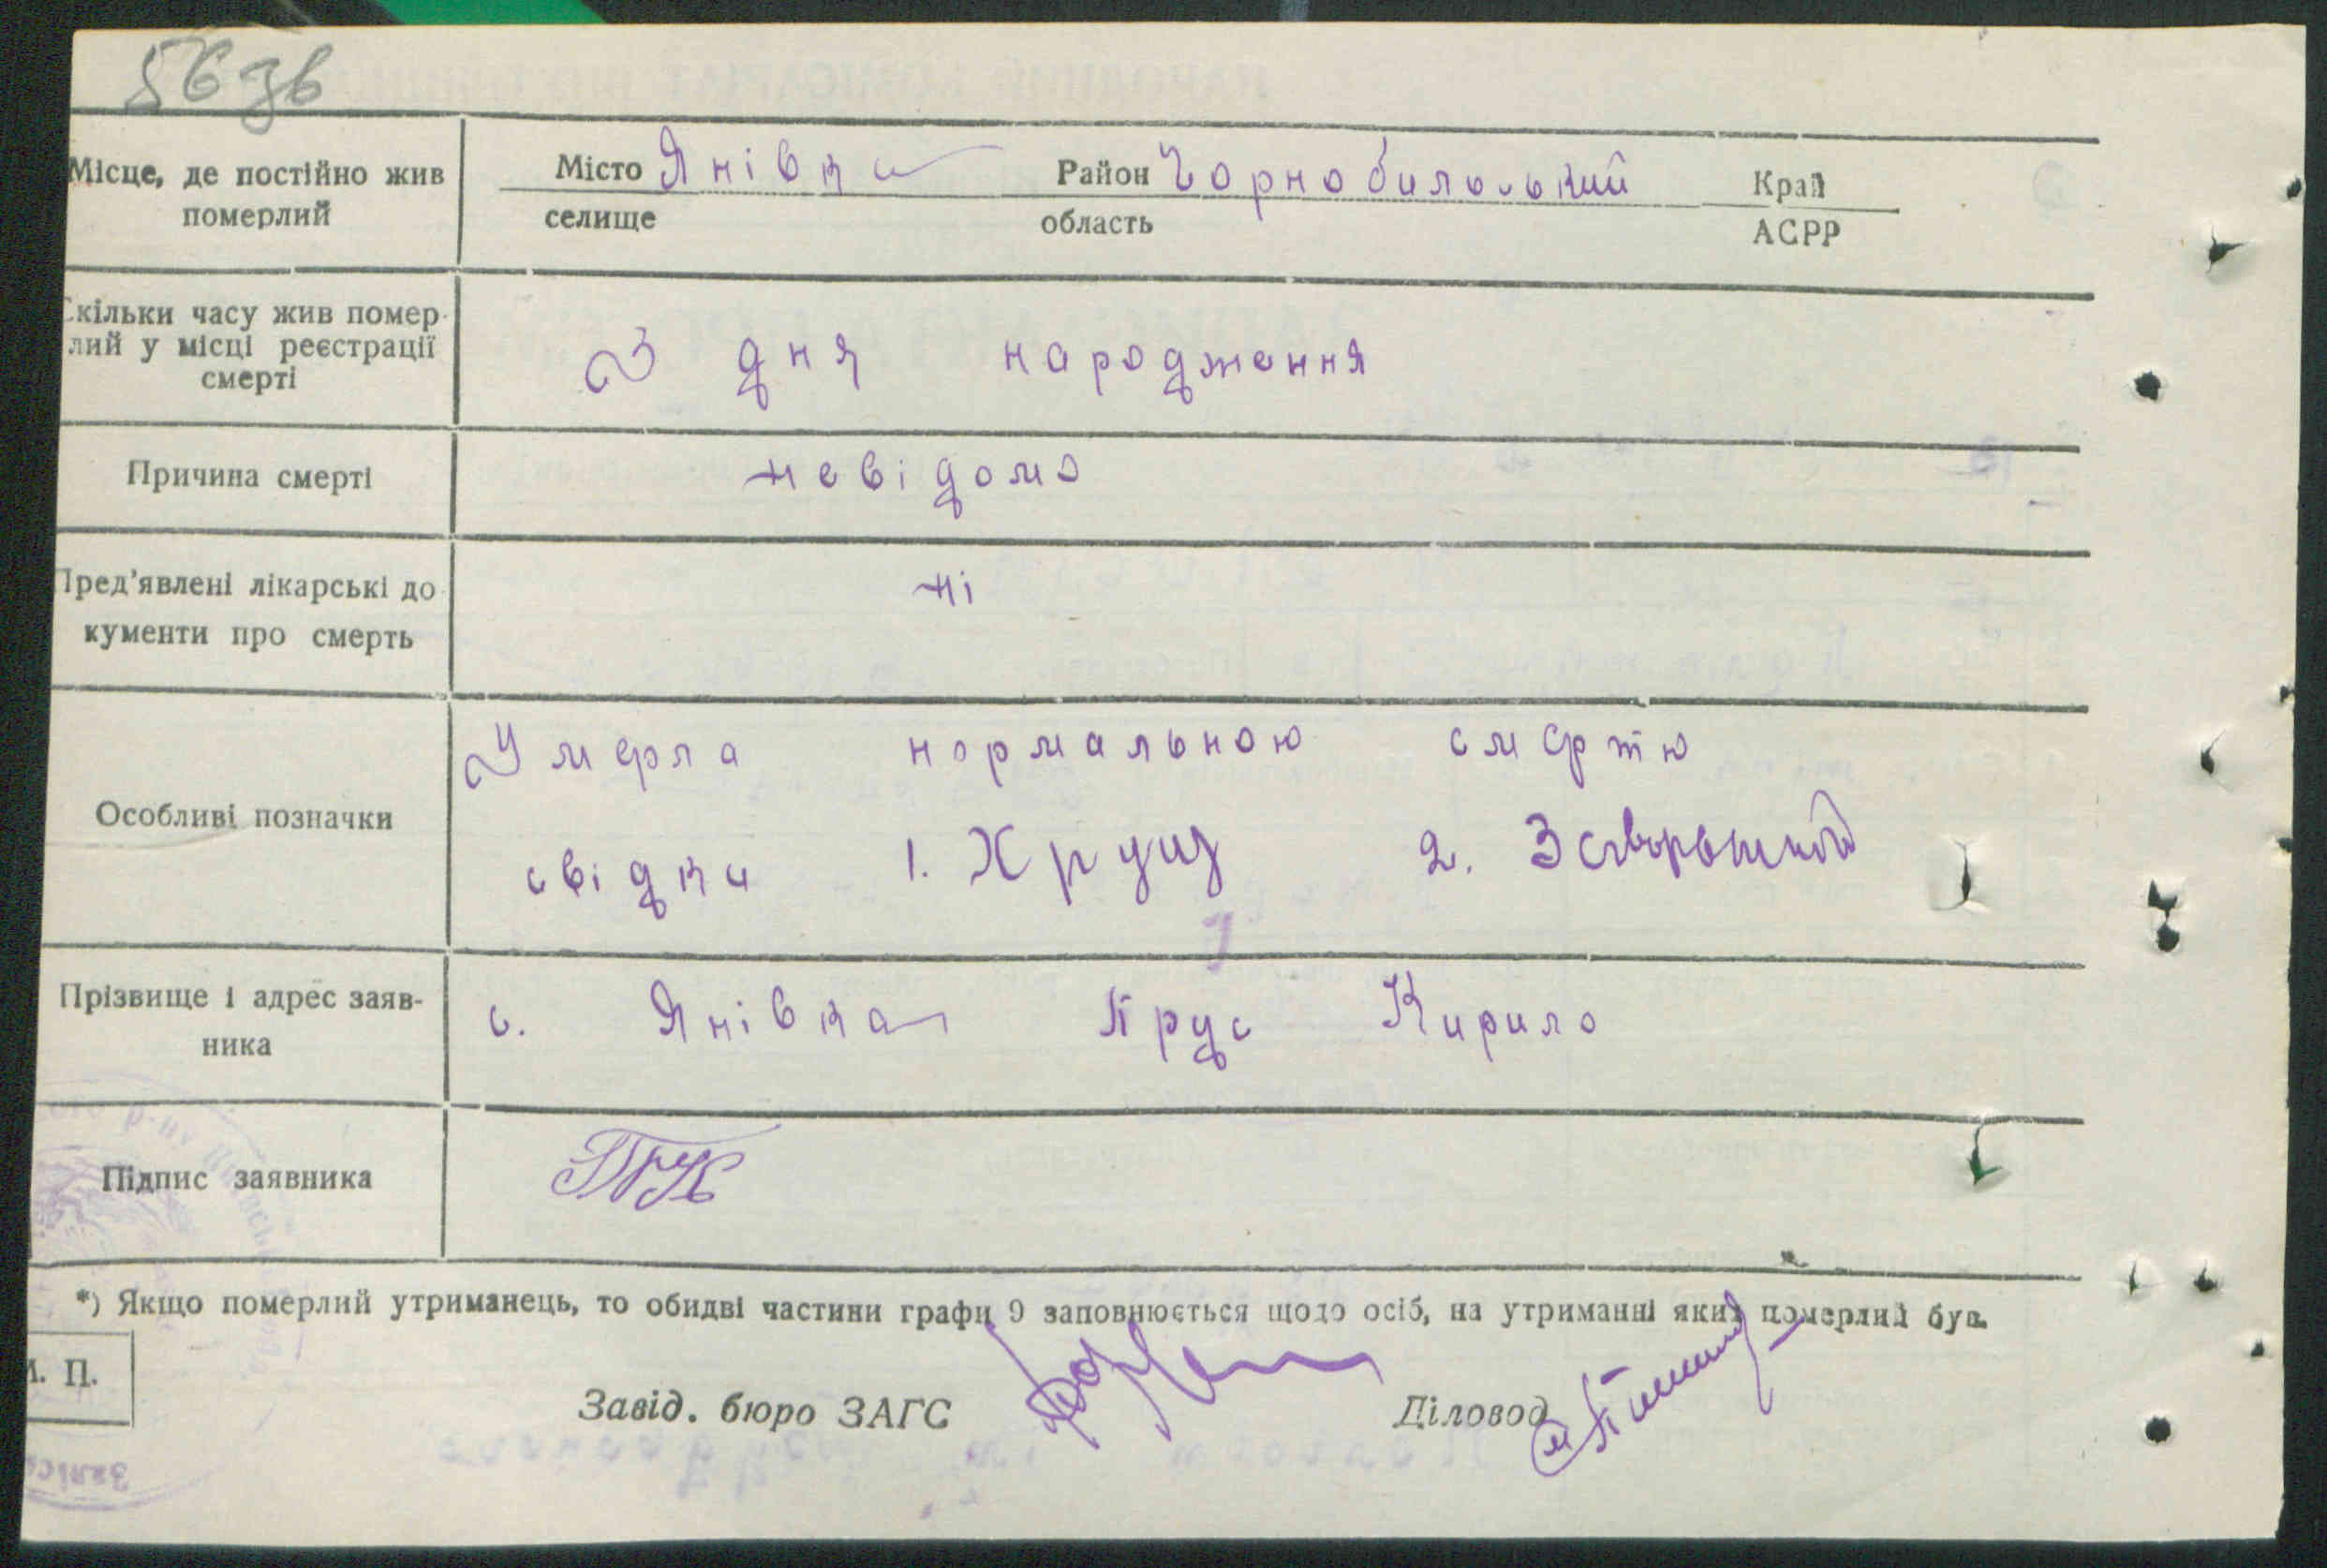 56 зв
Місце, де постійно жив
померлий
Місто Янівка Район Чорнобильский Край
селище область АСРР
Скільки часу жив помер-
лий у місці реєстрації
смерті
З дня народження
Причина смерті
невідомо
Пред'явлені лікарські до
кументи про смерть
ні
Особливі позначки
Умерла нормальною смертю
свідки 1. 2.
Прізвище і адрес заяв-
ника
с. Янівка Прус Кирило
Підпис заявника
*) Якщо померлий утриманець, то обидві частини графи 9 заповнюється щодо осіб, на утриманні яких померлий був.
М. П.
Завід. бюро ЗАГС Діловод